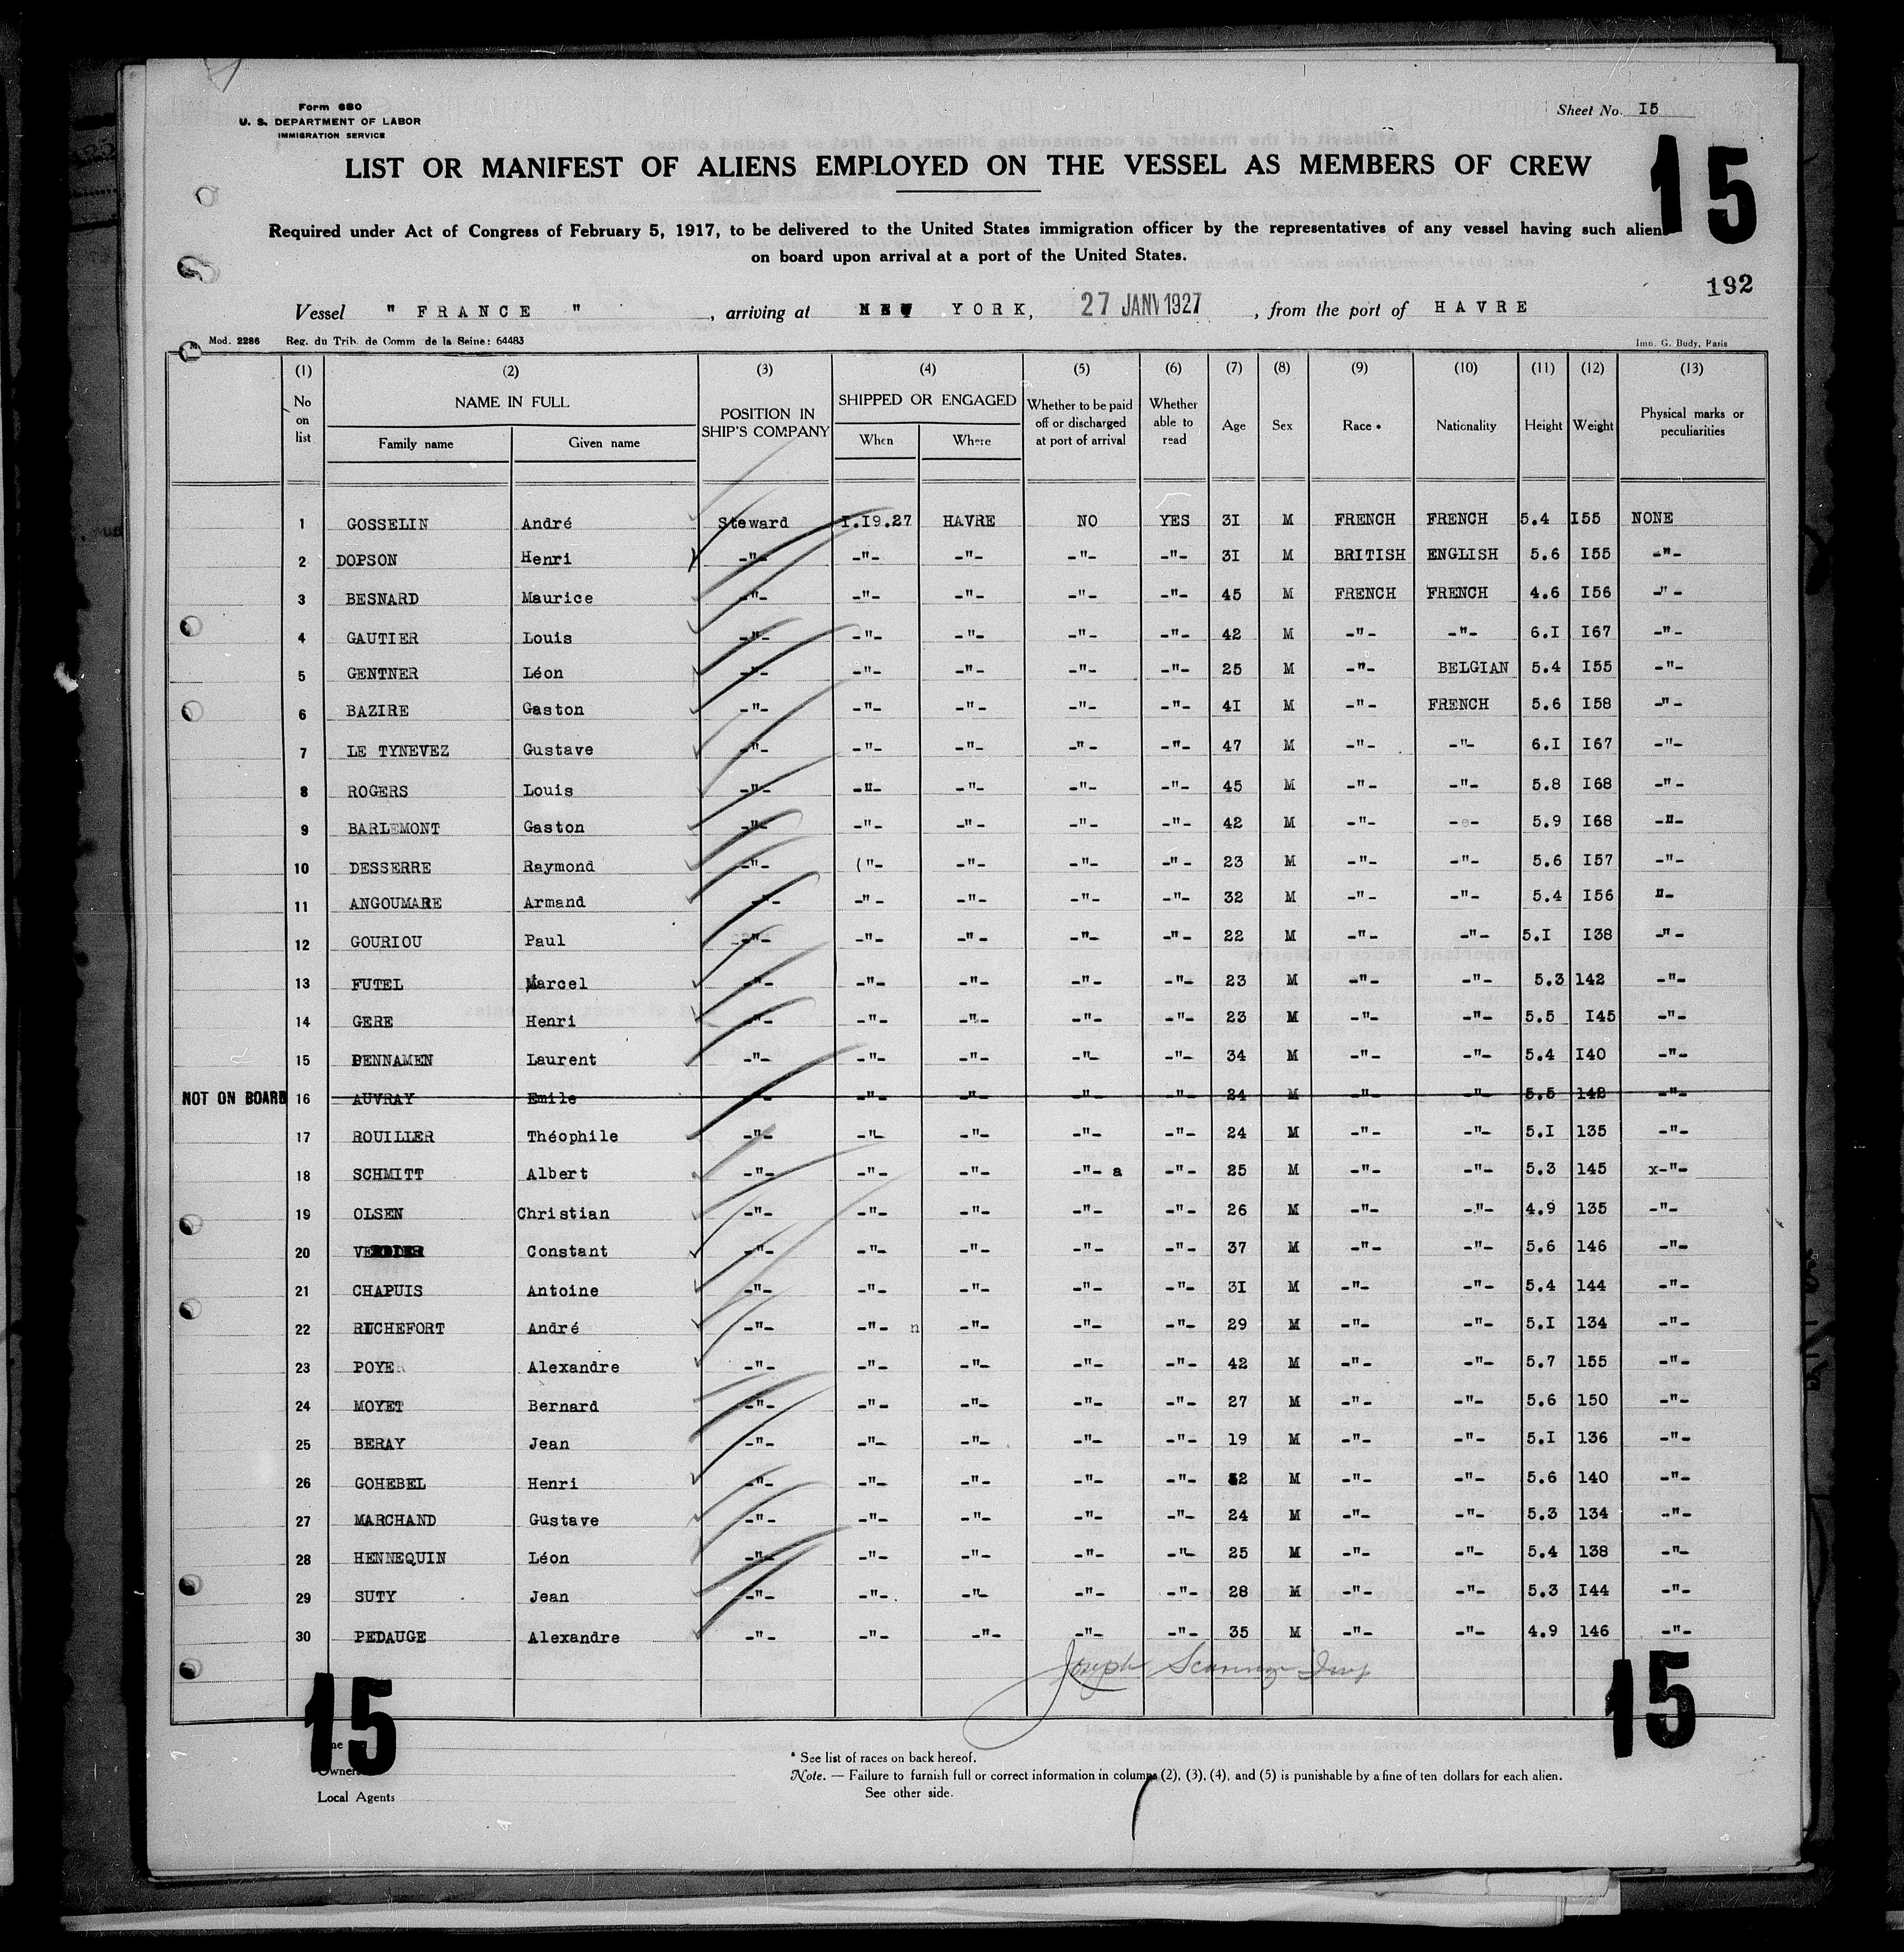 Form 680
U. S. DEPARTMENT OF LABOR
IMMIGRATION SERVICE
Sheet No. I5
15
LIST OR MANIFEST OF ALIENS EMPLOYED ON THE VESSEL AS MEMBERS OF CREW
Required under Act of Congress of February 5, 1917, to be delivered to the United States immigration officer by the representatives of any vessel having such aliens
on board upon arrival at a port of the United States.
192
Vessel " FRANCE " , arriving at NEW YORK, 27 JANV 1927 , from the port of HAVRE
Mod. 2286 Reg. du Trib. de Comm de la Seine: 64483 Imp. G. Budy, Paris
(1) (2) (3) (4) (5) (6) (7) (8) (9) (10) (11) (12) (13)
No on list NAME IN FULL Family name Given name POSITION IN SHIP'S COMPANY SHIPPED OR ENGAGED When Where Whether to be paid off or discharged at port of arrival Whether able to read Age Sex Race * Nationality Height Weight Physical marks or peculiarities
1 GOSSELIN André Steward I.I9.27 HAVRE NO YES 3I M FRENCH FRENCH 5.4 I55 NONE
2 DOPSON Henri -"- -"- -"- -"- -"- 3I M BRITISH ENGLISH 5.6 I55 -"-
3 BESNARD Maurice -"- -"- -"- -"- -"- 45 M FRENCH FRENCH 4.6 I56 -"-
4 GAUTIER Louis -"- -"- -"- -"- -"- 42 M -"- -"- 6.I I67 -"-
5 GENTNER Léon -"- -"- -"- -"- -"- 25 M -"- BELGIAN 5.4 I55 -"-
6 BAZIRE Gaston -"- -"- -"- -"- -"- 4I M -"- FRENCH 5.6 I58 -"-
7 LE TYNEVEZ Gustave -"- -"- -"- -"- -"- 47 M -"- -"- 6.I I67 -"-
8 ROGERS Louis -"- -"- -"- -"- -"- 45 M -"- -"- 5.8 I68 -"-
9 BARLEMONT Gaston -"- -"- -"- -"- -"- 42 M -"- -e- 5.9 I68 -"-
10 DESSERRE Raymond -"- ("- -"- -"- -"- 23 M -"- -"- 5.6 I57 -"-
11 ANGOUMARE Armand -"- -"- -"- -"- -"- 32 M -"- -"- 5.4 I56 "-
12 GOURIOU Paul -"- -"- -"- -"- -"- 22 M -"- -"- 5.I I38 -"-
13 FUTEL Marcel -"- -"- -"- -"- -"- 23 M -"- -"- 5.3 142 -"-
14 GERE Henri -"- -"- -"- -"- -"- 23 M -"- -"- 5.5 I45 -"-
15 PENNAMEN Laurent -"- -"- -"- -"- -"- 34 M -"- -"- 5.4 I40 -"-
NOT ON BOARD 16 AUVRAY Emile -"- -"- -"- -"- -"- 24 M -"- -"- 5.5 142 -"-
17 ROUILLER Théophile -"- -"- -"- -"- -"- 24 M -"- -"- 5.I 135 -"-
18 SCHMITT Albert -"- -"- -"- -"- a -"- 25 M -"- -"- 5.3 145 x-"-
19 OLSEN Christian -"- -"- -"- -"- -"- 26 M -"- -"- 4.9 135 -"-
20 Constant -"- -"- -"- -"- -"- 37 M -"- -"- 5.6 146 -"-
21 CHAPUIS Antoine -"- -"- -"- -"- -"- 3I M -"- -"- 5.4 144 -"-
22 André -"- -"- n -"- -"- -"- 29 M -"- -"- 5.I 134 -"-
23 POYER Alexandre -"- -"- -"- -"- -"- 42 M -"- -"- 5.7 155 -"-
24 MOYET Bernard -"- -"- -"- -"- -"- 27 M -"- -"- 5.6 150 -"-
25 BERAY Jean -"- -"- -"- -"- -"- 19 M -"- -"- 5.I 136 -"-
26 GOHEBEL Henri -"- -"- -"- -"- -"- M -"- -"- 5.6 140 -"-
27 MARCHAND Gustave -"- -"- -"- -"- -"- 24 M -"- -"- 5.3 134 -"-
28 HENNEQUIN Léon -"- -"- -"- -"- -"- 25 M -"- -"- 5.4 138 -"-
29 SUTY Jean -"- -"- -"- -"- -"- 28 M -"- -"- 5.3 I44 -"-
30 PEDAUGE Alexandre -"- -"- -"- -"- -"- 35 M -"- -"- 4.9 146 -"-
Joseph
15 15
Owners
Local Agents
* See list of races on back hereof.
Note. — Failure to furnish full or correct information in columns (2), (3), (4), and (5) is punishable by a fine of ten dollars for each alien.
See other side.